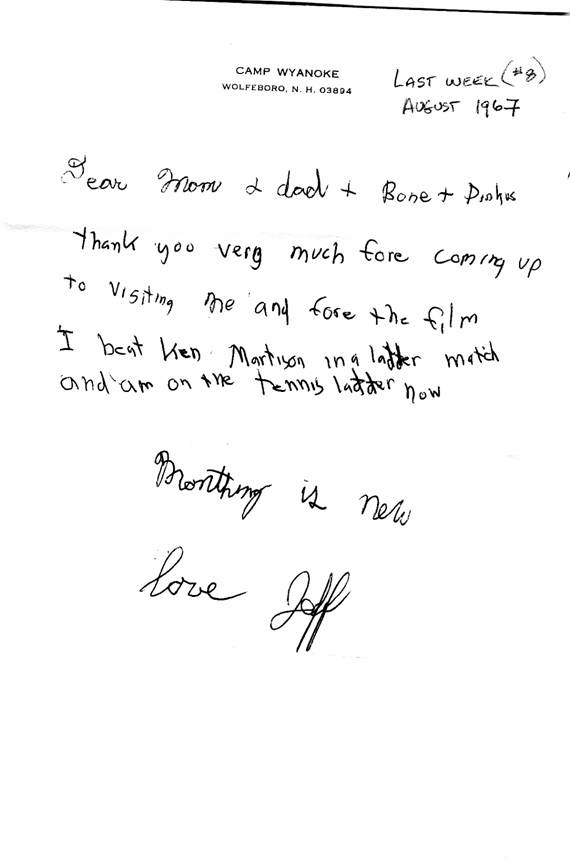 CAMP WYANOKE
WOLFEBORO, N. H. 03894
LAST WEEK (#8)
AUGUST 1967
Dear Mom & dad + Bone + Pinkus
thank yoo very much fore coming up
to visiting me and fore the film
I beat Ken Martison in a ladder match
and am on the tennis ladder now
Monthing is new
love Jeff